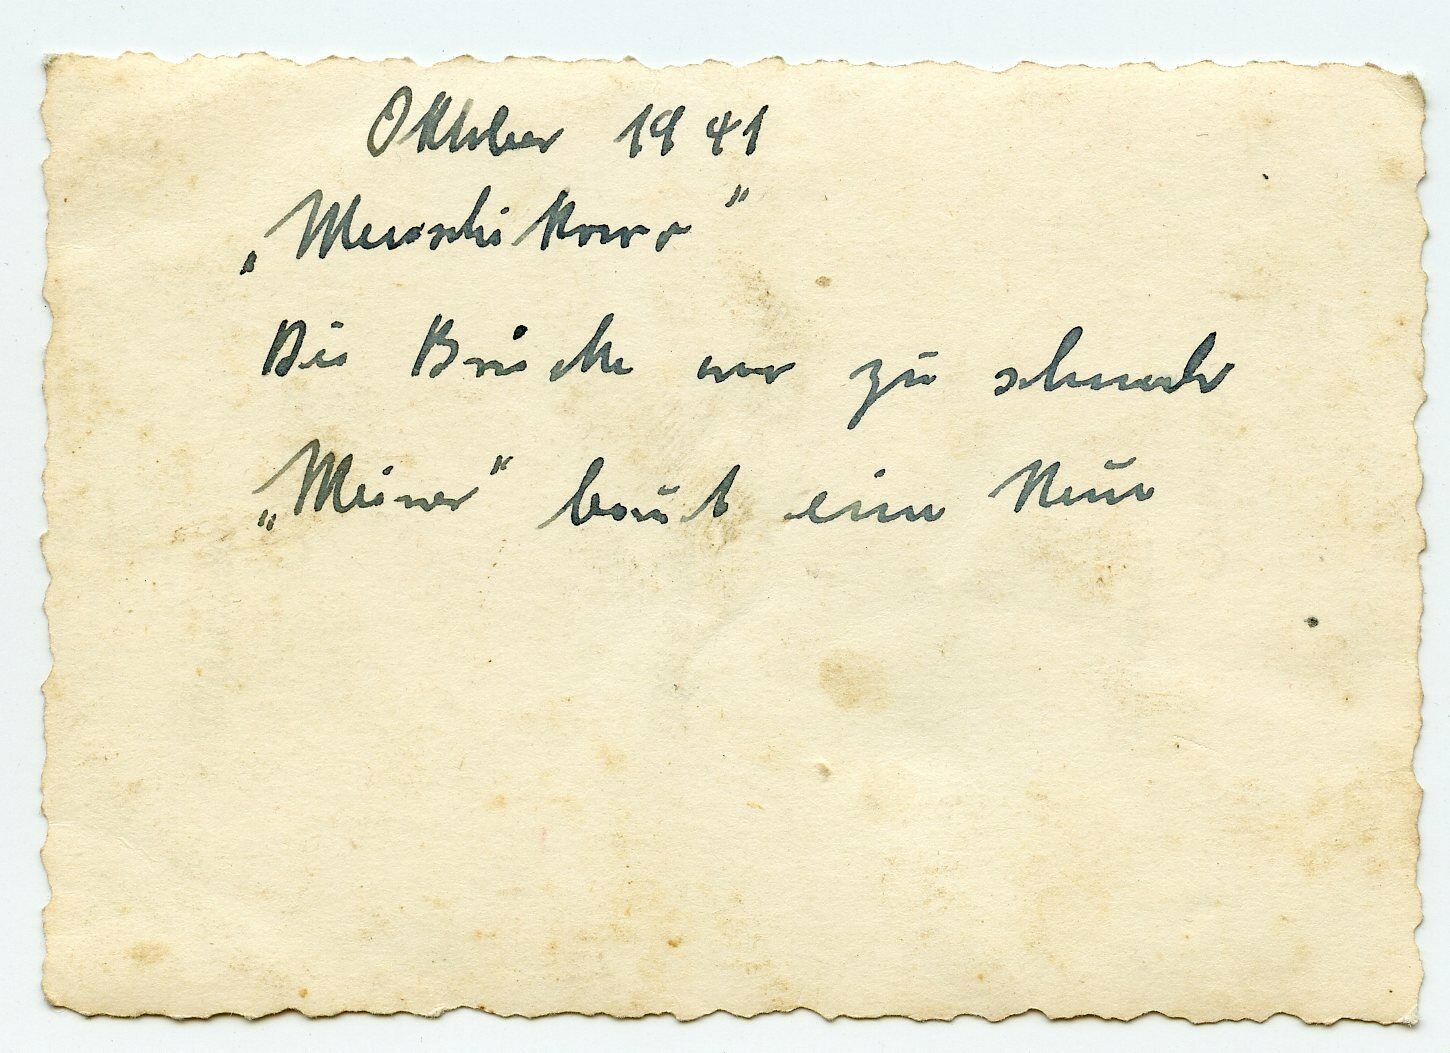 Oktober 1941
„Menschikowo"
Die Brücke war zu schwach
„Meiner" baut eine Neue